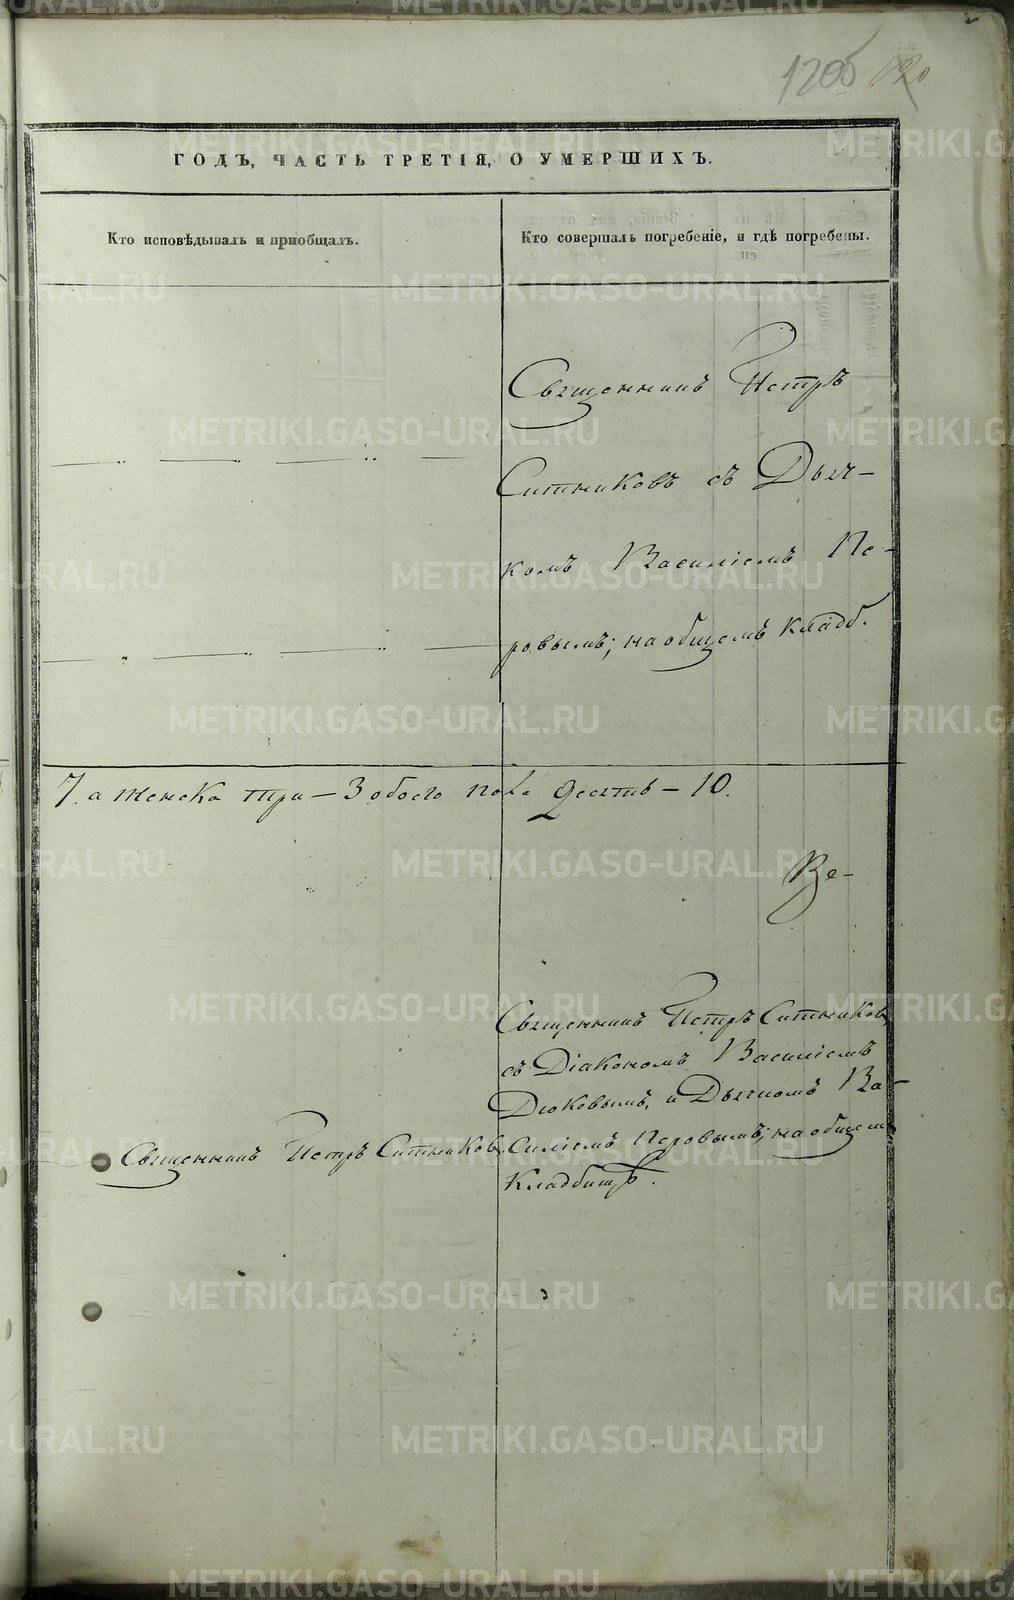 120б
ГОДЪ, ЧАСТЬ ТРЕТІЯ, О УМЕРШИХЪ.
Кто исповѣдывалъ и пріобщалъ.
Кто совершалъ погребеніе, и гдѣ погребены.
Священникъ Петръ
Ситниковъ съ Дьяч-
комъ Василіемъ Пе-
ровымъ; на общемъ кладб.
7. а женска три – 3 обоего пола десять – 10.
Ве-
Священникъ Петръ Ситников,
съ Діакономъ Василіемъ
Дюковымъ, и Дьячкомъ Ва-
Священникъ Петръ Ситников,
силіемъ Перовымъ; на общемъ
кладбищѣ.
METRIKI.GASO-URAL.RU